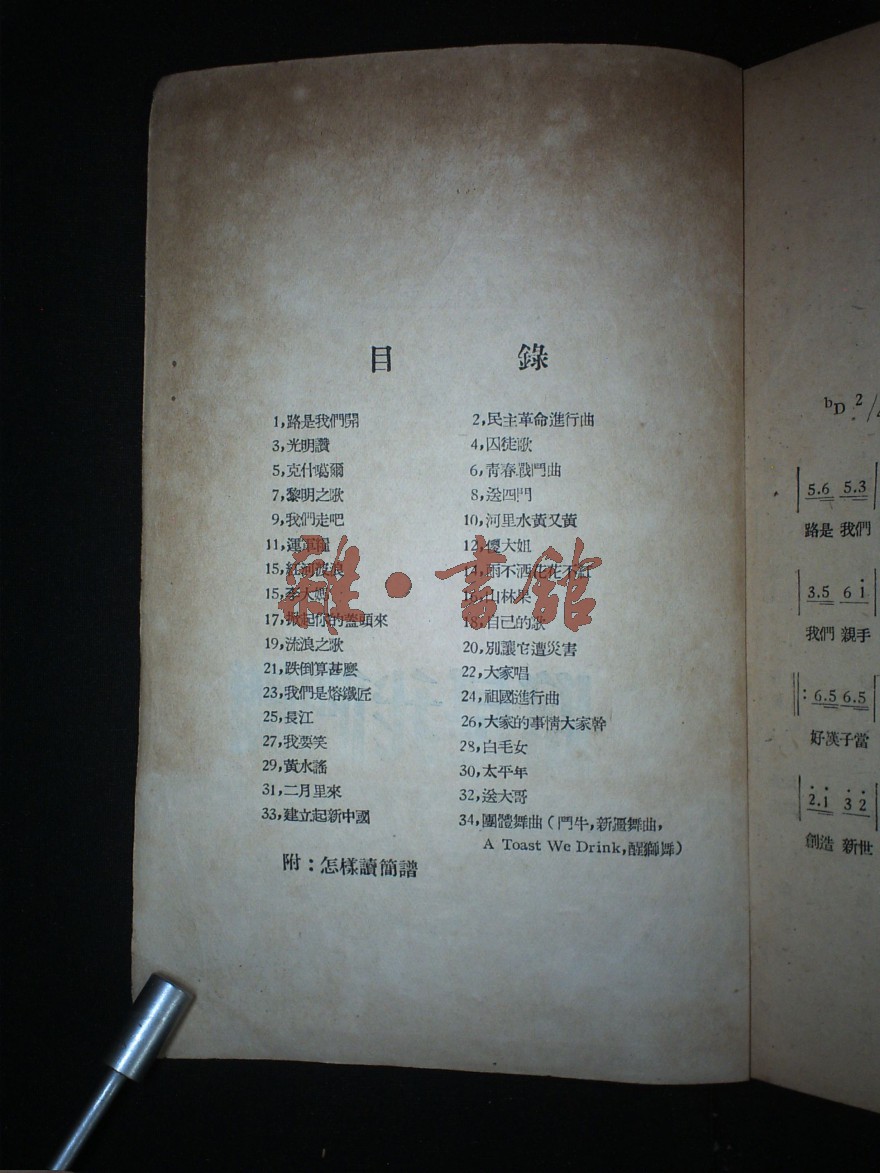 目 錄
1,路是我們開 2,民主革命進行曲
3,光明讚 4,囚徒歌
5,克什噶爾 6,青春戰鬥曲
7,黎明之歌 8,送四門
9,我們走吧 10,河里水黃又黃
11,運軍糧 12,傻大姐
15,紅河波浪 14,雨不洒花花不紅
15,李大媽 16,山林果
17,掀起你的蓋頭來 18,自己的歌
19,流浪之歌 20,別讓它遭災害
21,跌倒算甚麼 22,大家唱
23,我們是熔鐵匠 24,祖國進行曲
25,長江 26,大家的事情大家幹
27,我要笑 28,白毛女
29,黃水謠 30,太平年
31,二月里來 32,送大哥
33,建立起新中國 34,團體舞曲(鬥牛,新疆舞曲,
A Toast We Drink,醒獅舞)
附:怎樣讀簡譜
雜·書館
bD 2/
5.6 5.3
路是 我們
3.5 6 i
我們 親手
6.5 6.5
好漢子當
2.1 3 2
創造 新世